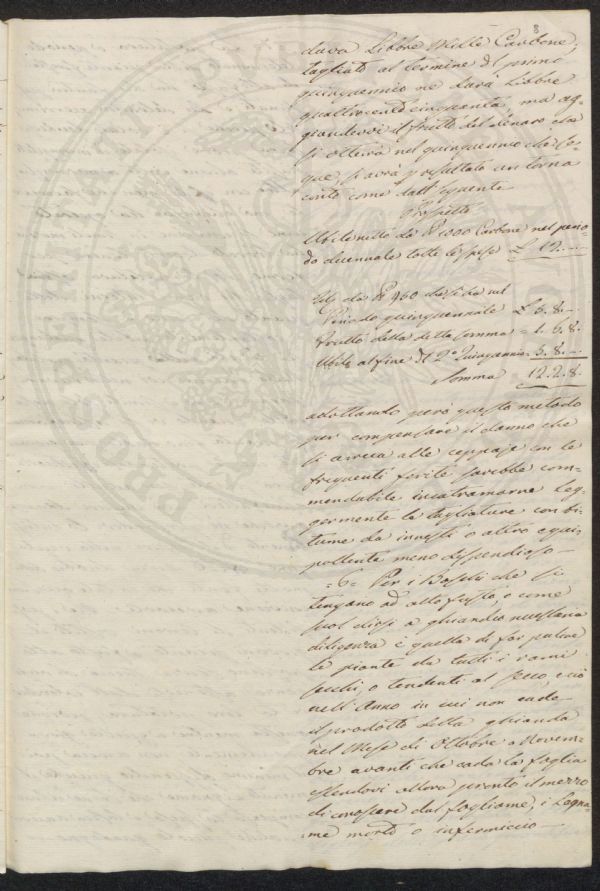 8
dava Libbre Mille Carbone,
tagliato al termine del primo
quinquennio ne darà Libbre
quattrocento cinquanta, ma ag-
giundevi il frutto del denaro che
si ottiene nel quinquennio che se-
gue si avrà p resultato un torna
conto come dall' seguente
Prospetto
Utile netto da 1000 Carbone nel perio-
do decennale tolte le spese £ 12.
da 460 che si ha nel
Periodo quinquennale £ 5. 8.
Frutto della detta somma = 1. 6. 8.
Utile al fine del 2º Quinquennio = 5. 8.
Somma 12. 2. 8.
adottando però questo metodo
per compensare il danno che
si arreca alle ceppaje con le
frequenti ferite sarebbe com-
mendabile incatramarne leg-
germente le tagliature con bi-
tume da innesti o altro equi-
pollente meno dispendioso —
= 6 = Per i Boschi che si
tengano ad alto fusto, o come
suol dirsi a ghianda necessaria
diligenza è quella di far pulire
le piante da tutti i rami
secchi, o tendenti al secco, e ciò
nell' Anno in cui non cade
il prodotto della ghianda
nel Mese di Ottobre o Novem-
bre avanti che cada la foglia
essendovi allora pronto il mezzo
di conoscere dal fogliame, i Legna-
me morto o infermiccio
PROSPERITÀ